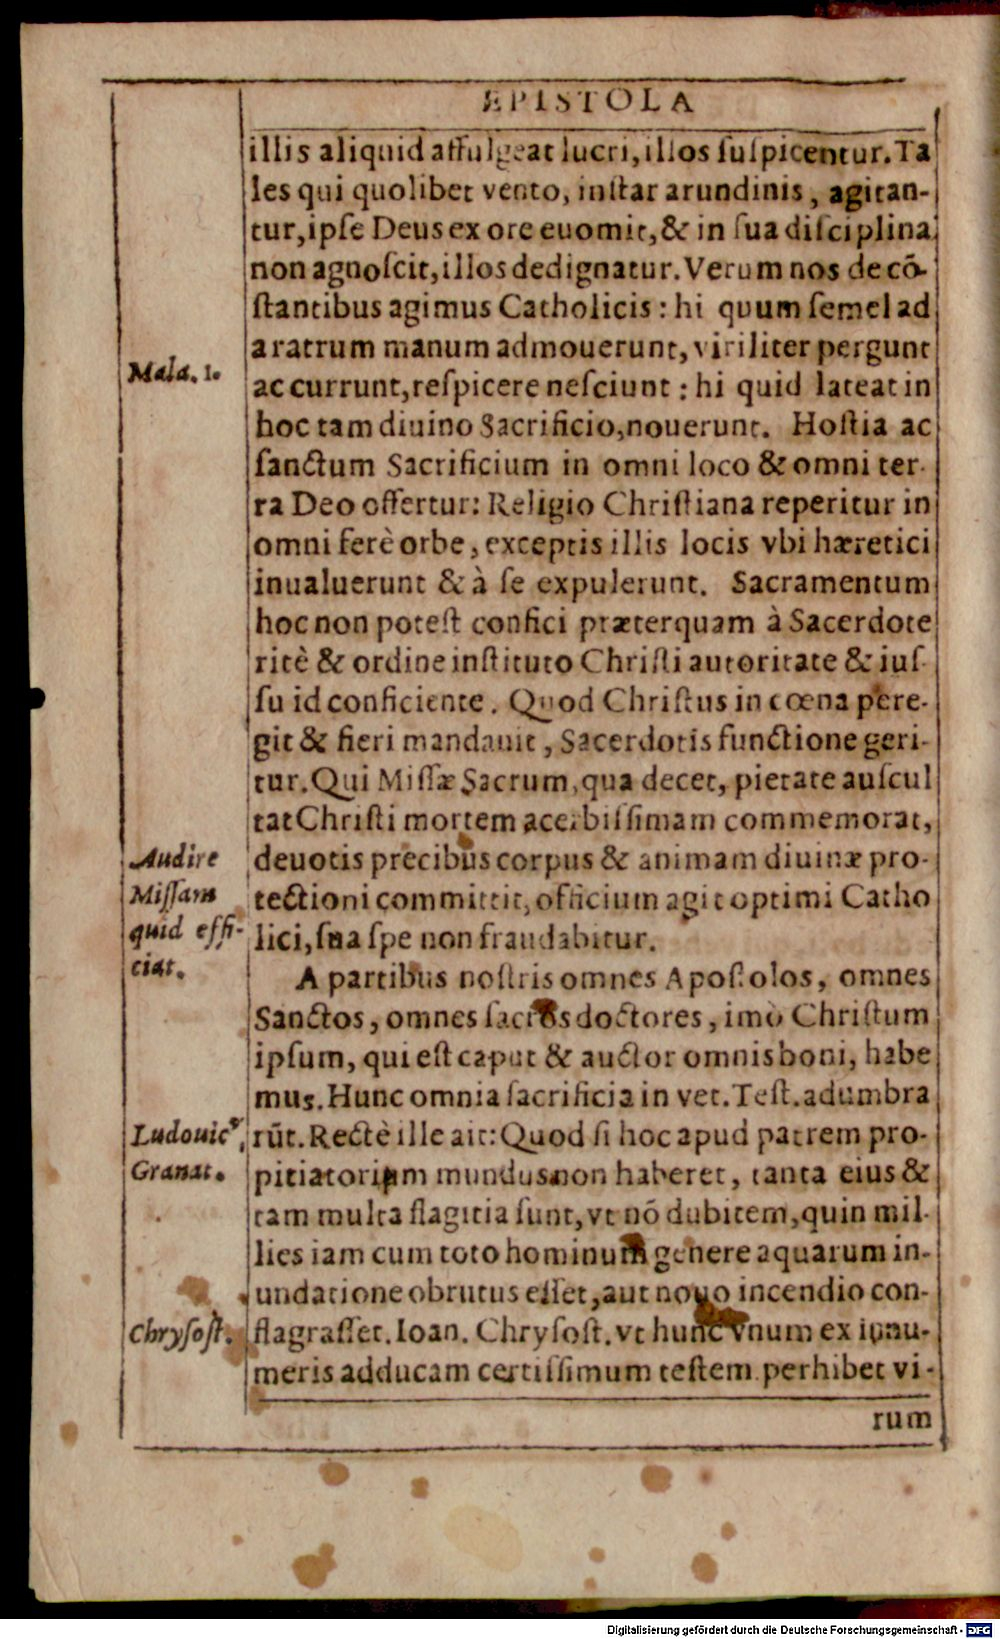 EPISTOLA
illis aliquid affulgeat lucri, illos suspicentur. Ta
les qui quolibet vento, instar arundinis, agitan-
tur, ipse Deus ex ore euomit, & in sua disciplina
non agnoscit, illos dedignatur. Verum nos de cō-
stantibus agimus Catholicis: hi quum semel ad
aratrum manum admouerunt, viriliter pergunt
Mala. 1.
ac currunt, respicere nesciunt: hi quid lateat in
hoc tam diuino Sacrificio, nouerunt. Hostia ac
sanctum Sacrificium in omni loco & omni ter-
ra Deo offertur: Religio Christiana reperitur in
omni ferè orbe, exceptis illis locis vbi hæretici
inualuerunt & à se expulerunt. Sacramentum
hoc non potest confici præterquam à Sacerdote
ritè & ordine instituto Christi autoritate & ius-
su id conficiente. Quod Christus in cœna pere-
git & fieri mandauit, Sacerdotis functione geri-
tur. Qui Missæ Sacrum, qua decet, pietate auscul
tat Christi mortem acerbissimam commemorat,
Audire
Missam
quid effi-
ciat.
deuotis precibus corpus & animam diuinæ pro-
tectioni committit, officium agit optimi Catho
lici, sua spe non fraudabitur.
A partibus nostris omnes Apostolos, omnes
Sanctos, omnes sacros doctores, imò Christum
ipsum, qui est caput & auctor omnis boni, habe
mus. Hunc omnia sacrificia in vet. Test. adumbra
Ludouicꝰ
Granat.
rūt. Rectè ille ait: Quod si hoc apud patrem pro-
pitiatorium mundus non haberet, tanta eius &
tam multa flagitia sunt, vt nō dubitem, quin mil-
lies iam cum toto hominum genere aquarum in-
undatione obrutus esset, aut nouo incendio con-
Chrysost.
flagrasset. Ioan. Chrysost. vt hunc vnum ex innu-
meris adducam certissimum testem perhibet vi-
rum
Digitalisierung gefördert durch die Deutsche Forschungsgemeinschaft - DFG